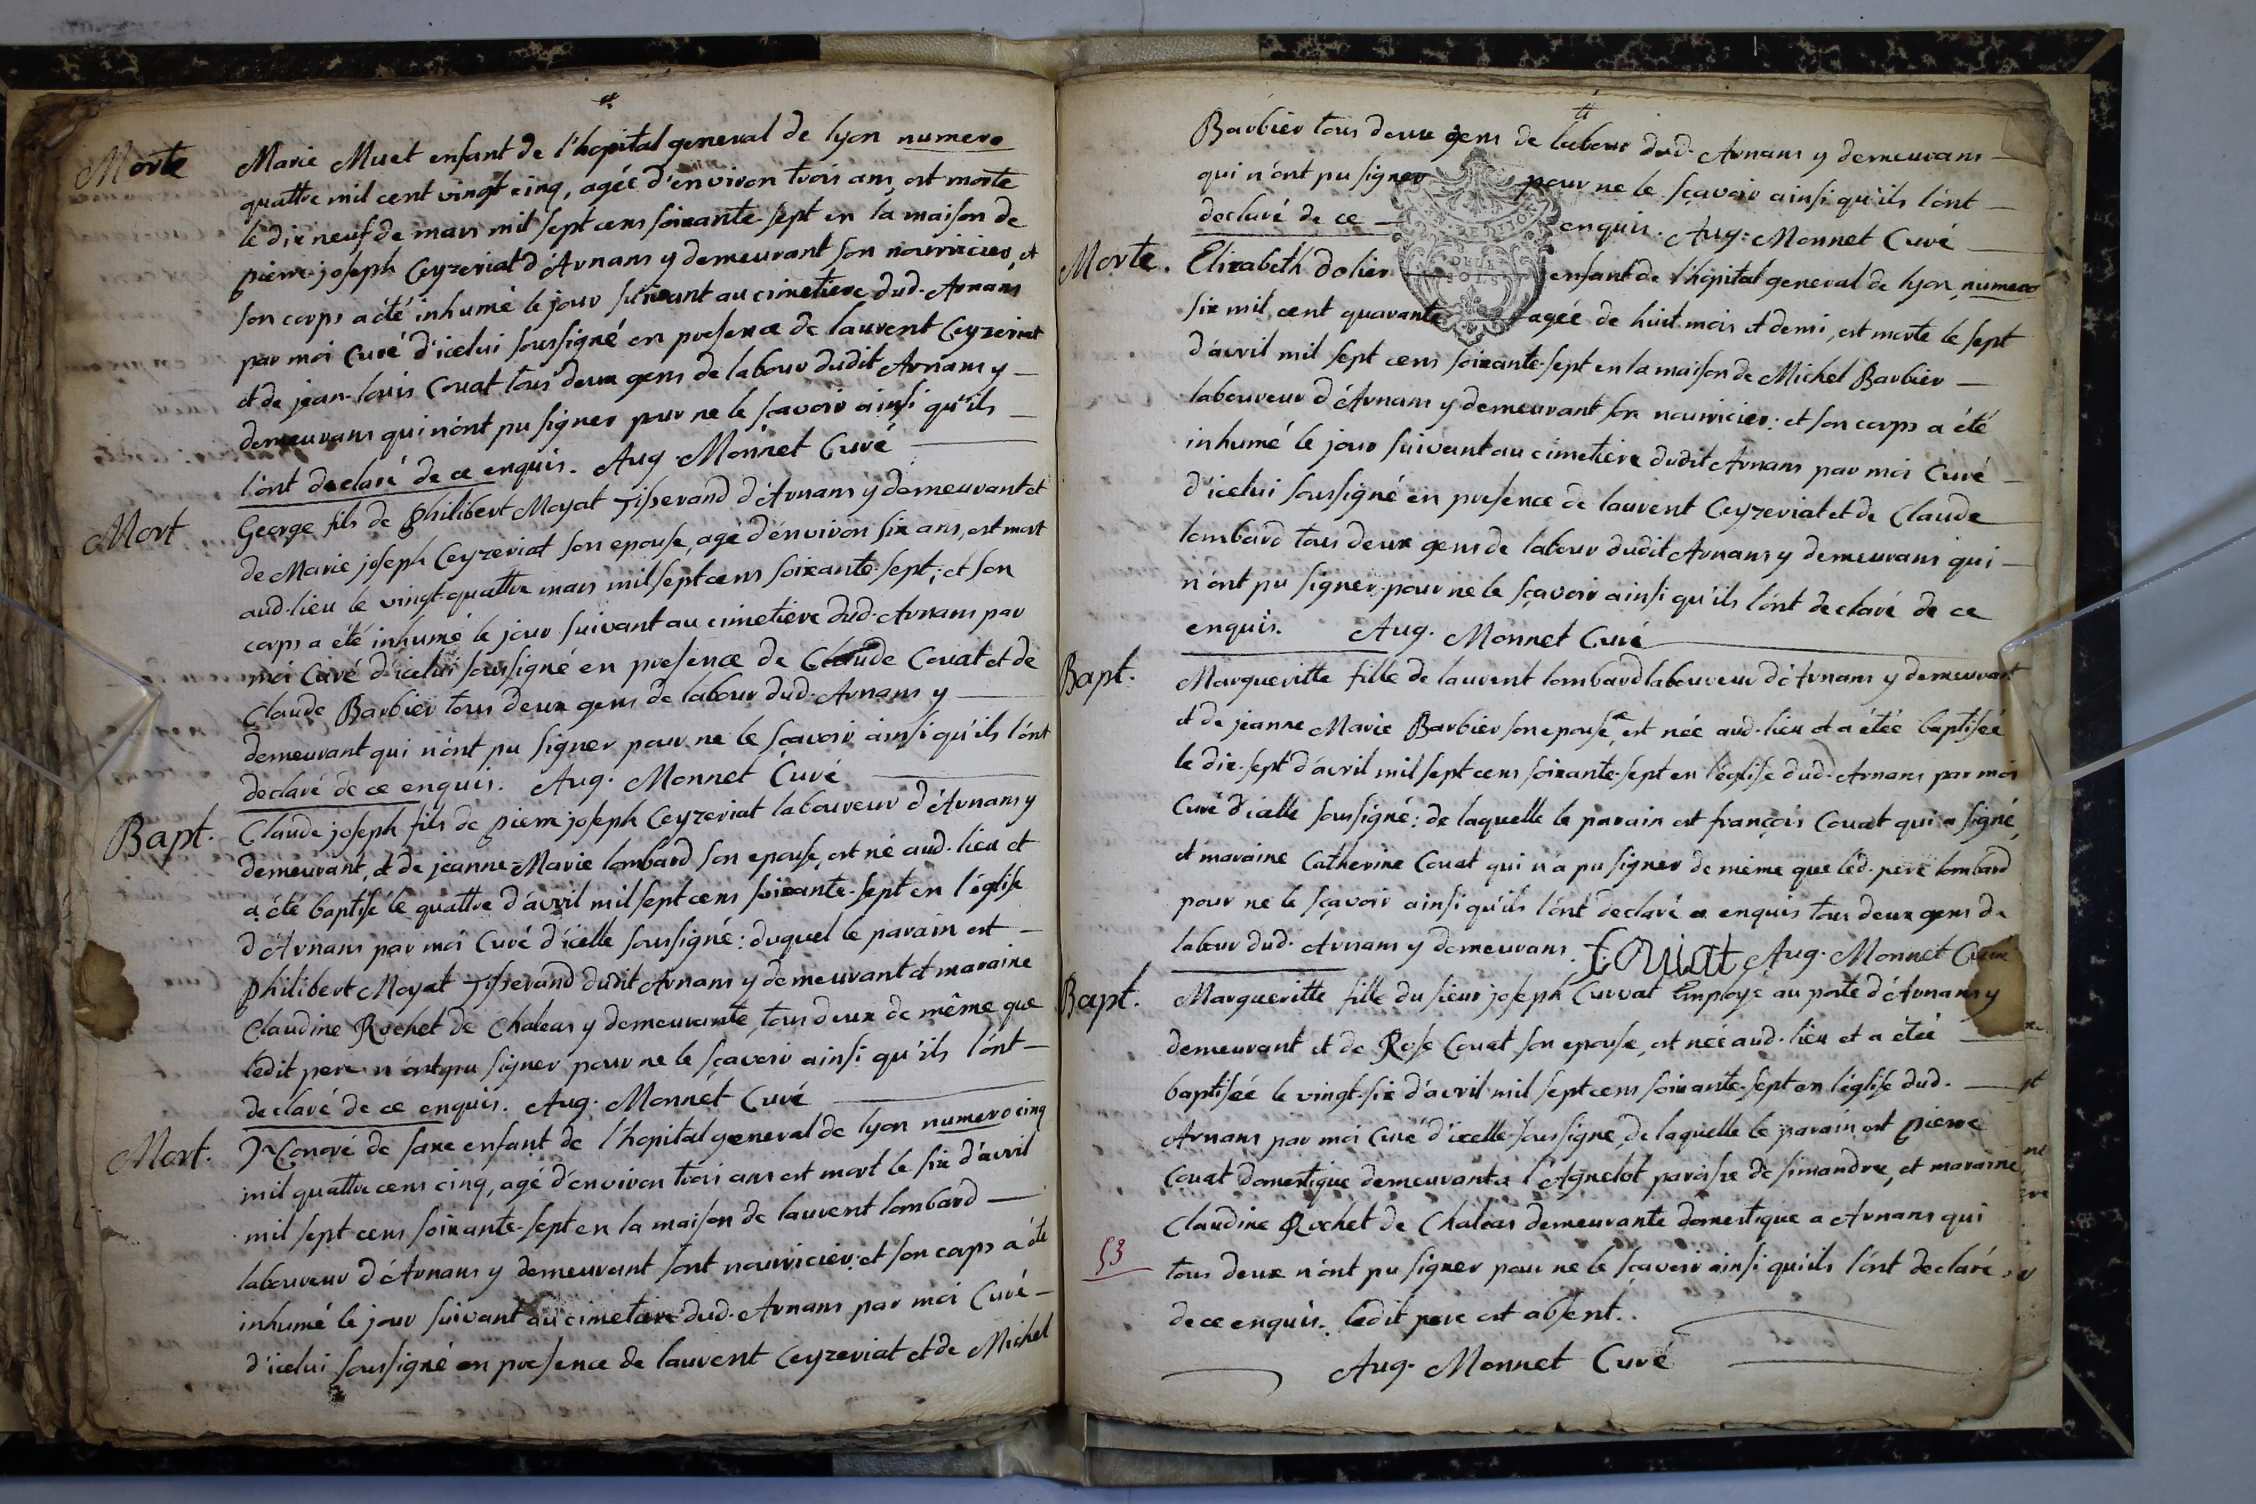 Morte
Marie Muet enfant de l'hopital general de lyon numero
quattre mil cent vingt cinq, agée d'environ trois ans, est morte
le dix neuf de mars mil sept cens soixante-sept en la maison de
pierre-joseph Ceyzeriat d'Arnans y demeurant son nourricier, et
son corps a été inhumé le jour suivant au cimetiere dud. Arnans
par moi Curé d'icelui soussigné en presence de laurent Ceyzeriat
et de jean-louis Couat tous deux gens de labour dudit Arnans y
demeurans qui n'ont pu signer pour ne le sçavoir ainsi qu'ils
l'ont declaré de ce enquis. Aug. Monnet Curé
Mort
George fils de philibert Moyat Tisserand d'Arnans y demeurant et
de Marie joseph Ceyzeriat son epouse, agé d'environ six ans, est mort
aud. lieu le vingt-quattre mars mil sept cens soixante-sept; et son
corps a été inhumé le jour suivant au cimetiere dud. Arnans par
moi Curé d'icelui soussigné en presence de Claude Couat et de
Claude Barbier tous deux gens de labour dud. Arnans y
demeurant qui n'ont pu signer pour ne le sçavoir ainsi qu'ils l'ont
declaré de ce enquis. Aug. Monnet Curé
Bapt.
Claude joseph fils de pierre joseph Ceyzeriat laboureur d'Arnans y
demeurant, et de jeanne-Marie lombard son epouse, est né aud. lieu et
a été baptisé le quattre d'avril mil sept cens soixante-sept en l'église
d'Arnans par moi Curé d'icelle soussigné: duquel le parain est
philibert Moyat Tisserand dudit Arnans y demeurant et maraine
Claudine Rochet de Chaleas y demeurante, tous deux de même que
ledit pere n'ont pu signer pour ne le sçavoir ainsi qu'ils l'ont
declaré de ce enquis. Aug. Monnet Curé
Mort.
Honoré de saxe enfant de l'hopital general de lyon numero cinq
mil quattre cens cinq, agé d'environ trois ans est mort le six d'avril
mil sept cens soixante-sept en la maison de laurent lombard
laboureur d'Arnans y demeurant sont nourricier: et son corps a été
inhumé le jour suivant au cimetiere dud. Arnans par moi Curé
d'icelui soussigné en presence de laurent Ceyzeriat et de Michel
Barbier tous deux gens de labour dud. Arnans y demeurans
qui n'ont pu signer pour ne le sçavoir ainsi qu'ils l'ont
declaré de ce enquis. Aug. Monnet Curé
Morte.
Elizabeth dolier enfant de l'hôpital general de lyon, numero
six mil cent quarante agée de huit mois et demi, est morte le sept
d'avril mil sept cens soixante-sept en la maison de Michel Barbier
laboureur d'Arnans y demeurant son nourricier: et son corps a été
inhumé le jour suivant au cimetiere dudit Arnans par moi Curé
d'icelui soussigné en presence de laurent Ceyzeriat et de Claude
lombard tous deux gens de labour dudit Arnans y demeurans qui
n'ont pu signer pour ne le sçavoir ainsi qu'ils l'ont declaré de ce
enquis. Aug. Monnet Curé
Bapt.
Margueritte fille de laurent lombard laboureur d'Arnans y demeurant
et de jeanne Marie Barbier son epouse, est née aud. lieu et a étée baptisée
le dix-sept d'avril mil sept cens soixante-sept en l'église dud. Arnans par moi
Curé d'icelle soussigné: de laquelle le parain est françois Couat qui a signé,
et maraine Catherine Couat qui n'a pu signer de même que led. pere lombard
pour ne le sçavoir ainsi qu'ils l'ont declaré ce enquis tous deux gens de
labour dud. Arnans y demeurans. f. Couat Aug. Monnet Curé
Bapt.
Margueritte fille du sieur joseph Curvat Employé au poste d'Arnans y
demeurant et de Rose Couat son epouse, est née aud. lieu et a étée
baptisée le vingt-six d'avril mil sept cens soixante-sept en l'église dud.
Arnans par moi Curé d'icelle soussigné, de laquelle le parain est pierre
Couat domestique demeurant a l'Agnelot paroisse de simandre, et maraine
Claudine Rochet de Chaleas demeurante domestique a Arnans qui
tous deux n'ont pu signer pour ne le sçavoir ainsi qu'ils l'ont declaré
de ce enquis. ledit pere est absent.
53
Aug. Monnet Curé